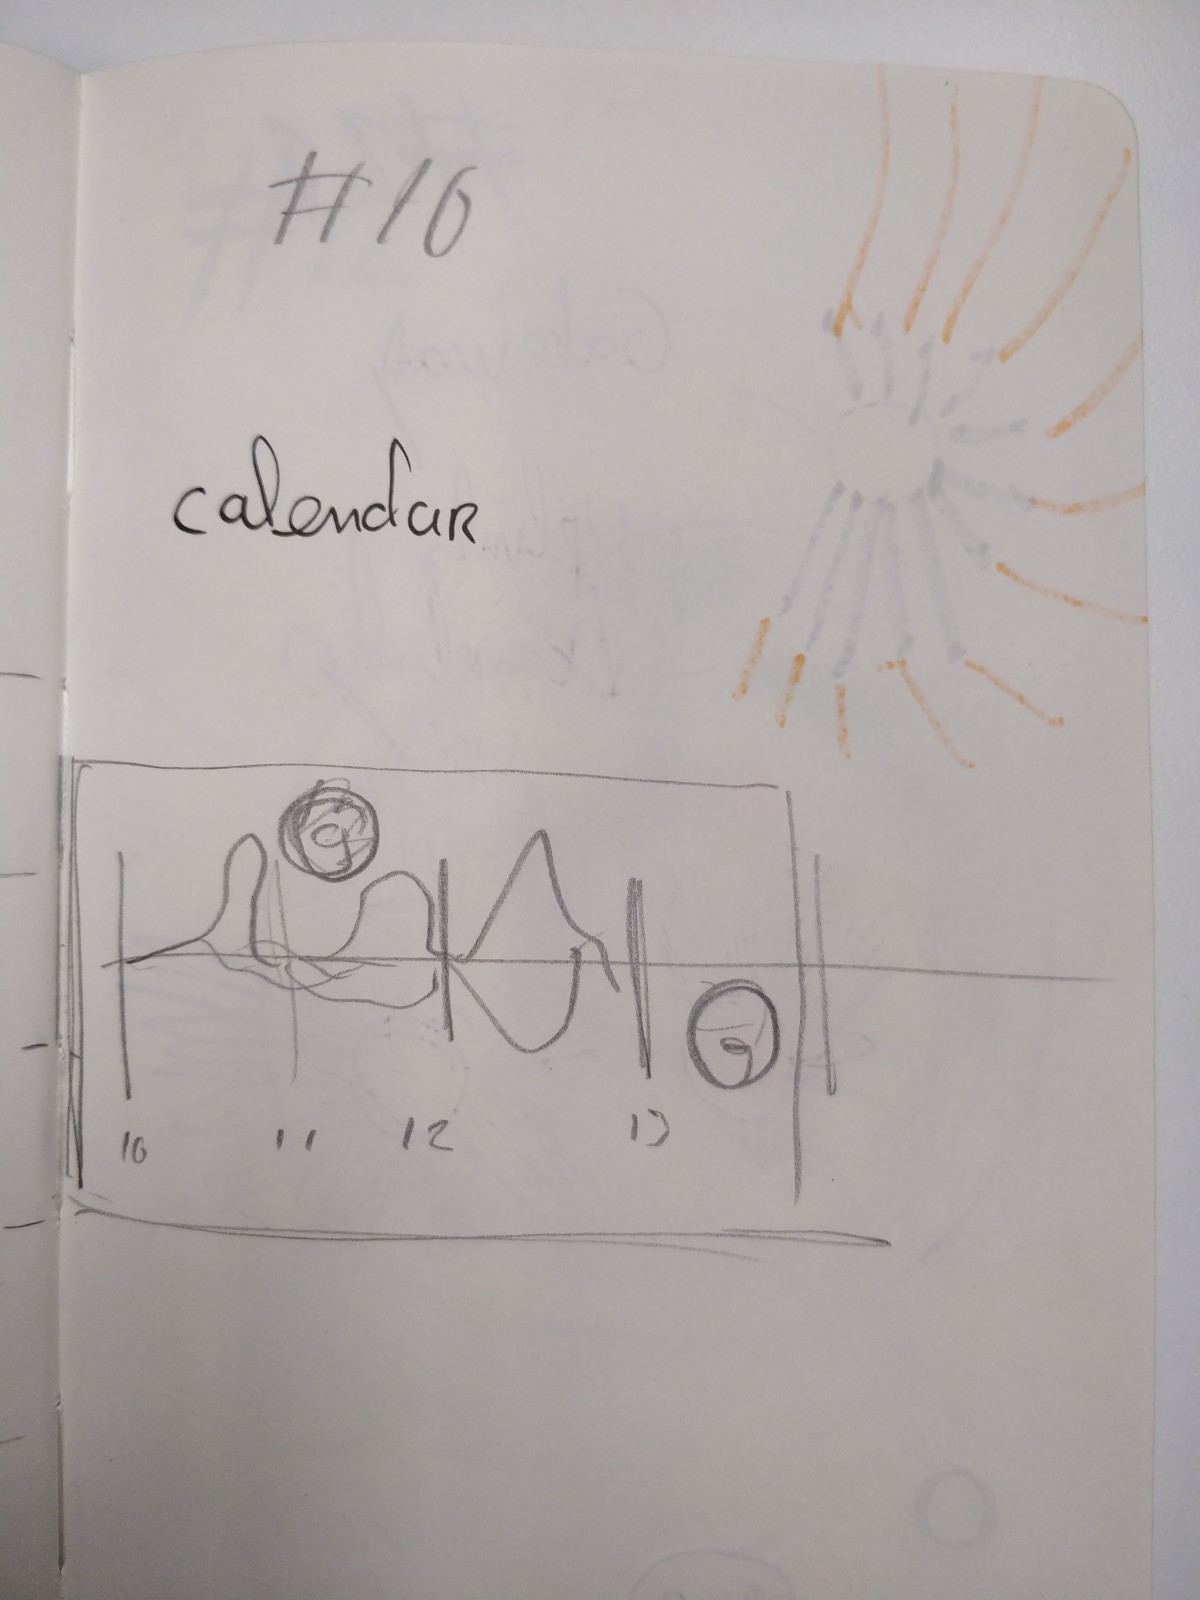 #10
calendar
10 11 12 13